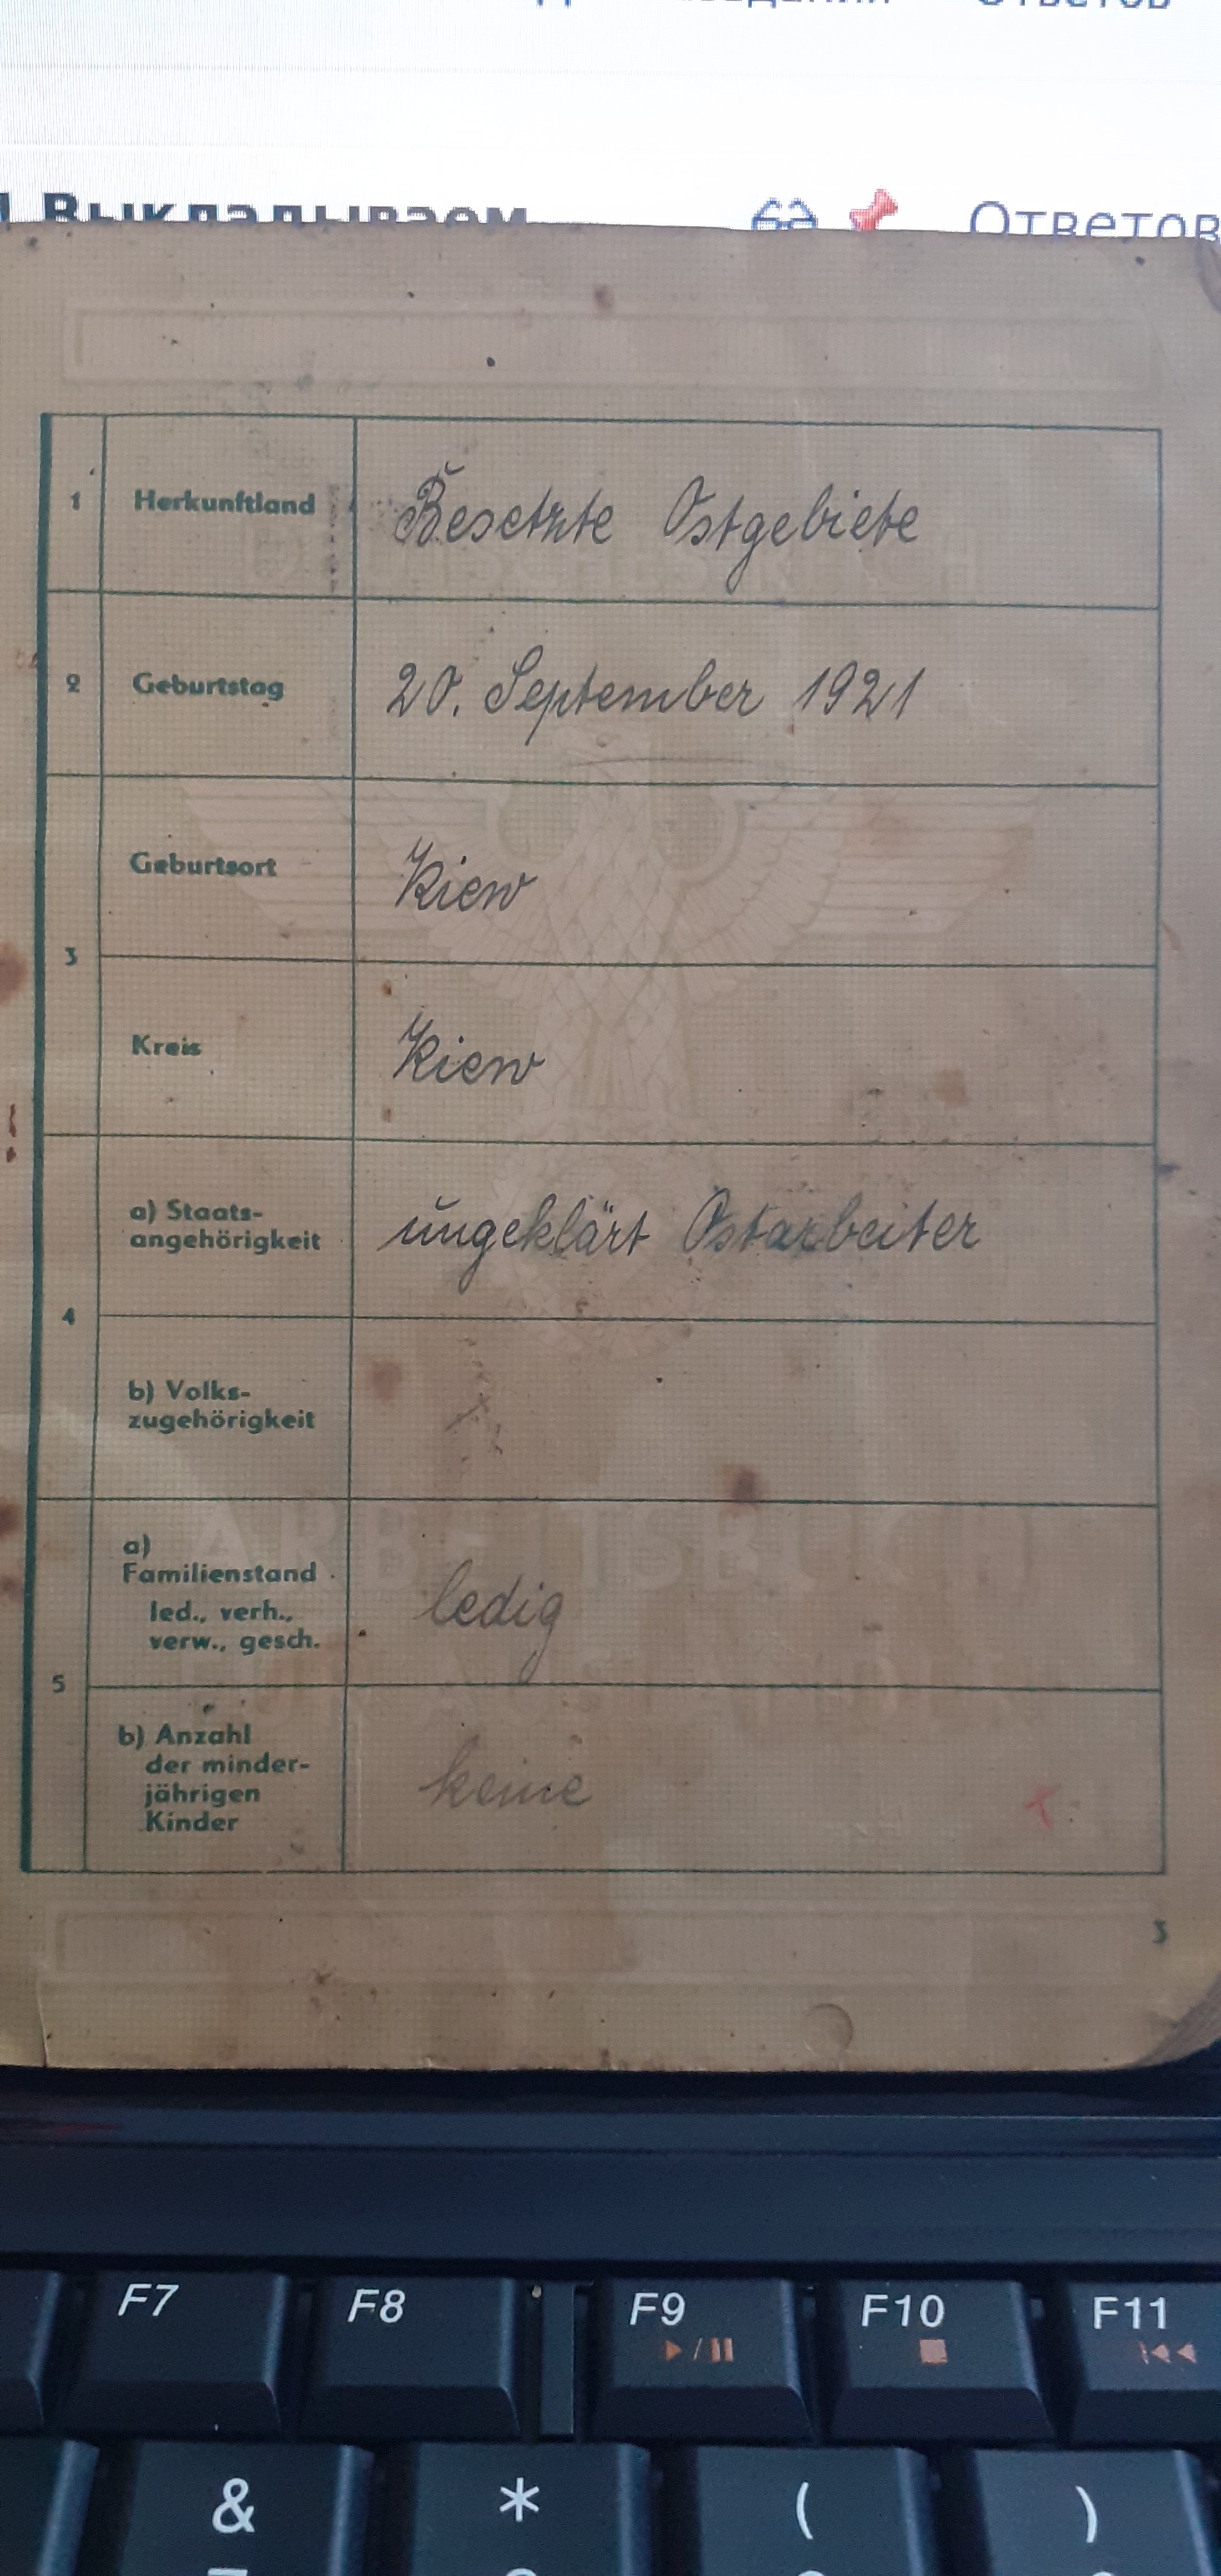 Выкладываем
Ответов
1 Herkunftland Besetzte Ostgebiete
2 Geburtstag 20. September 1921
Geburtsort Kiew
3
Kreis Kiew
a) Staats-
angehörigkeit ungeklärt Ostarbeiter
4
b) Volks-
zugehörigkeit
a)
Familienstand
led., verh., ledig
verw., gesch.
5
b) Anzahl
der minder-
jährigen keine
Kinder
3
ARBEITSBUCH
FÜR AUSLÄNDER
F7 F8 F9 F10 F11
& * ( )